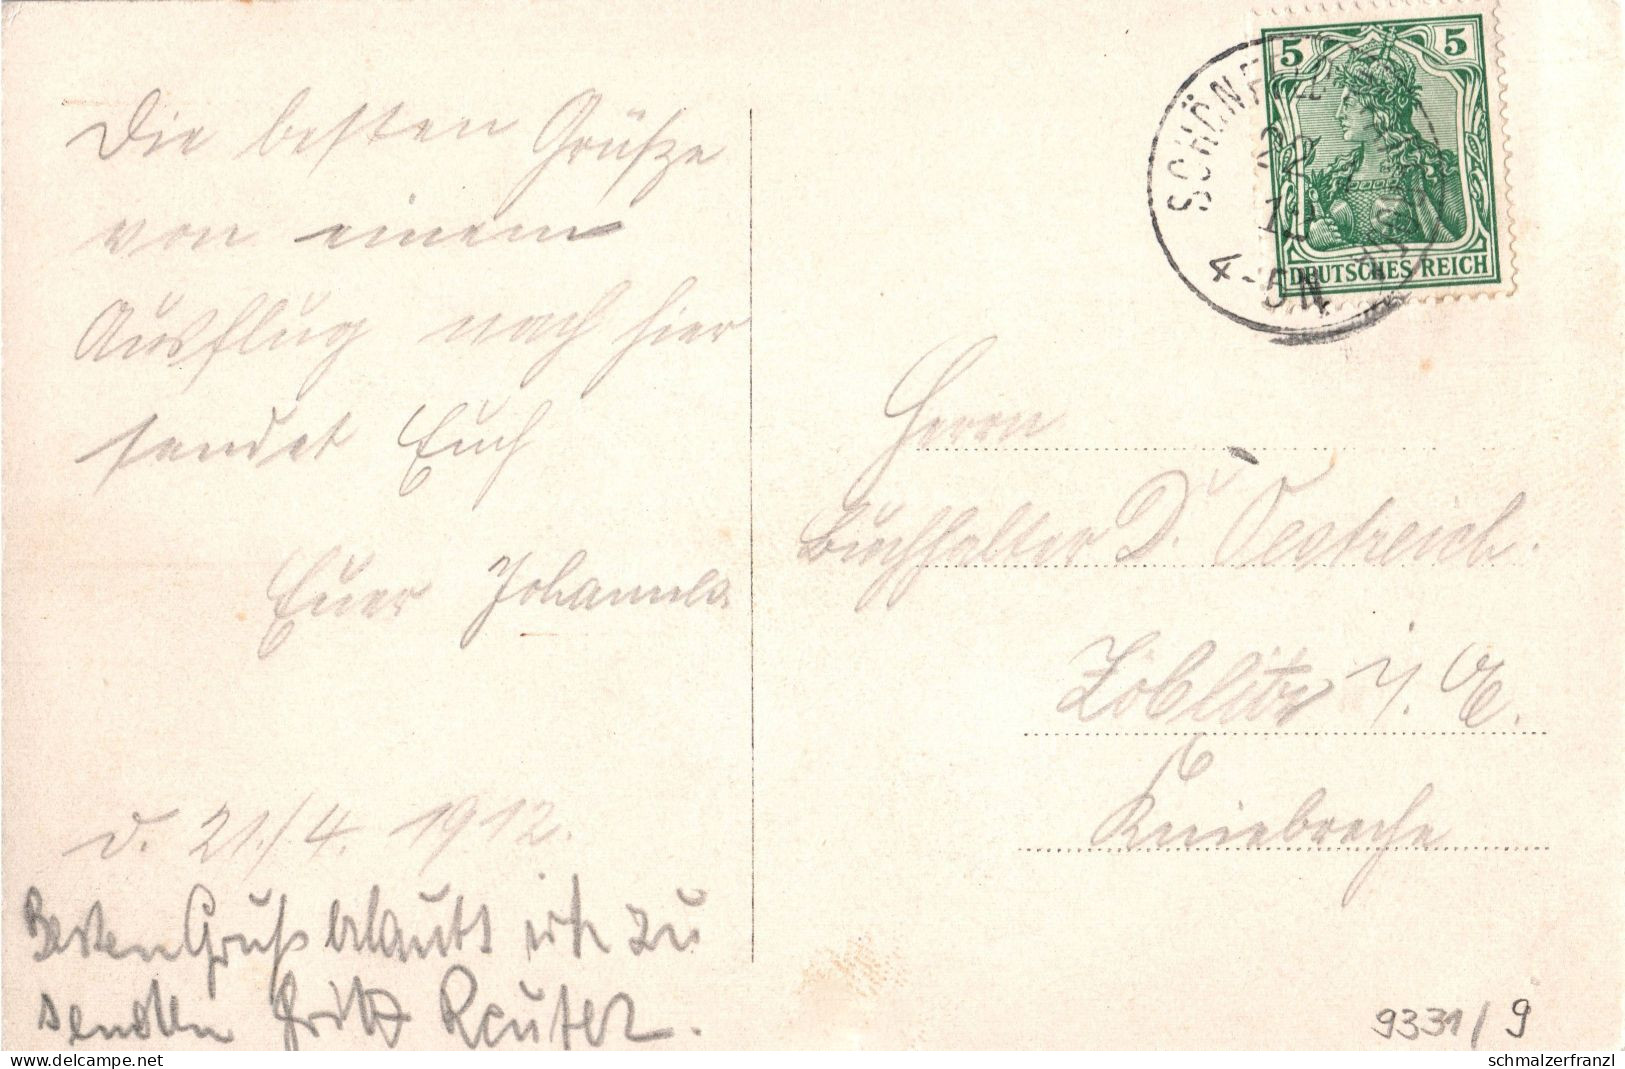 Die besten Grüße
von einem
Ausflug nach hier
sendet Euch
Eure Johannela
d. 21./4. 1912.
Besten Gruß erlaubt sich zu
senden Fritz Reuter.
5 5
DEUTSCHES REICH
SCHÖNF
22
12
4-5N.
Herrn
Buchhalter D. Oestreich.
Zöblitz i. E.
Kniebreche
9331/9
schmalzerfranzl